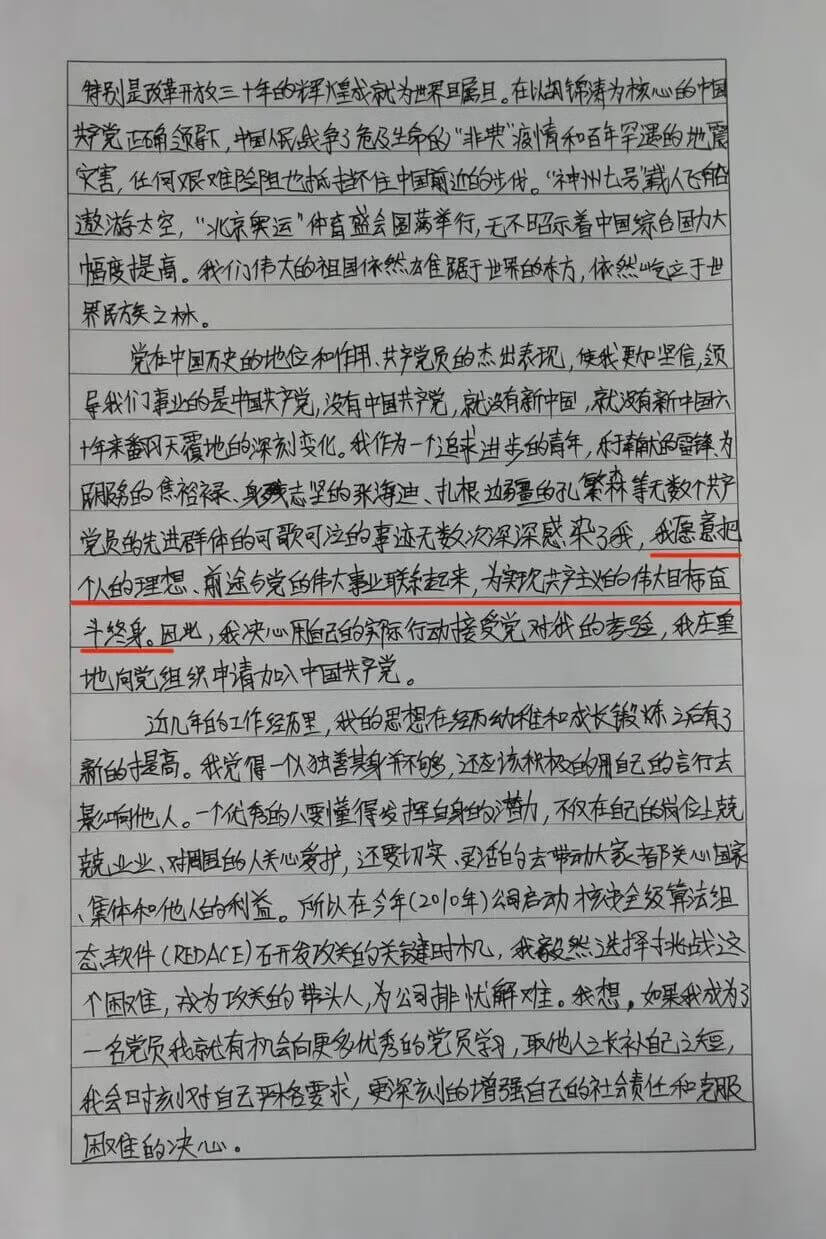 特别是改革开放三十年的辉煌成就为世界瞩目。在以胡锦涛为核心的中国
共产党正确领导下,中国人民战争了危及生命的“非典”疫情和百年罕遇的地震
灾害,任何艰难险阻也抵挡不住中国前近的步伐。“神州七号”载人飞船
遨游太空,“北京奥运”体育盛会圆满举行,无不昭示着中国综合国力大
幅度提高。我们伟大的祖国依然雄踞于世界的东方,依然屹立于世
界民族之林。
党在中国历史的地位和作用、共产党员的杰出表现,使我更加坚信,领
导我们事业的是中国共产党,没有中国共产党,就没有新中国,就没有新中国六
十年来翻冈天覆地的深刻变化。我作为一个追求进步的青年,乐于奉献的雷锋、为
民服务的焦裕禄、身残志坚的张海迪、扎根边疆的孔繁森等无数个共产
党员的先进群体的可歌可泣的事迹无数次深深感染了我,我愿意把
个人的理想、前途与党的伟大事业联系起来,为实现共产主义的伟大目标奋
斗终身。因此,我决心用自己的实际行动接受党对我的考验,我庄重
地向党组织申请加入中国共产党。
近几年的工作经历里,我的思想在经历幼稚和成长锻炼之后有了
新的提高。我觉得一个人独善其身并不够,还应该积极的用自己的言行去
影响他人。一个优秀的人要懂得发挥自身的潜力,不仅在自己的岗位上兢
兢业业、对周围的人关心爱护,还要切实、灵活的去带动大家都关心国家
、集体和他人的利益。所以在今年(2010年)公司启动核安全级算法组
态软件(REDACE)研发攻关的关键时机,我毅然选择挑战这
个困难,成为攻关的带头人,为公司排忧解难。我想,如果我成为了
一名党员我就有机会向更多优秀的党员学习,取他人之长补自己之短,
我会时刻对自己严格要求,更深刻的增强自己的社会责任和克服
困难的决心。